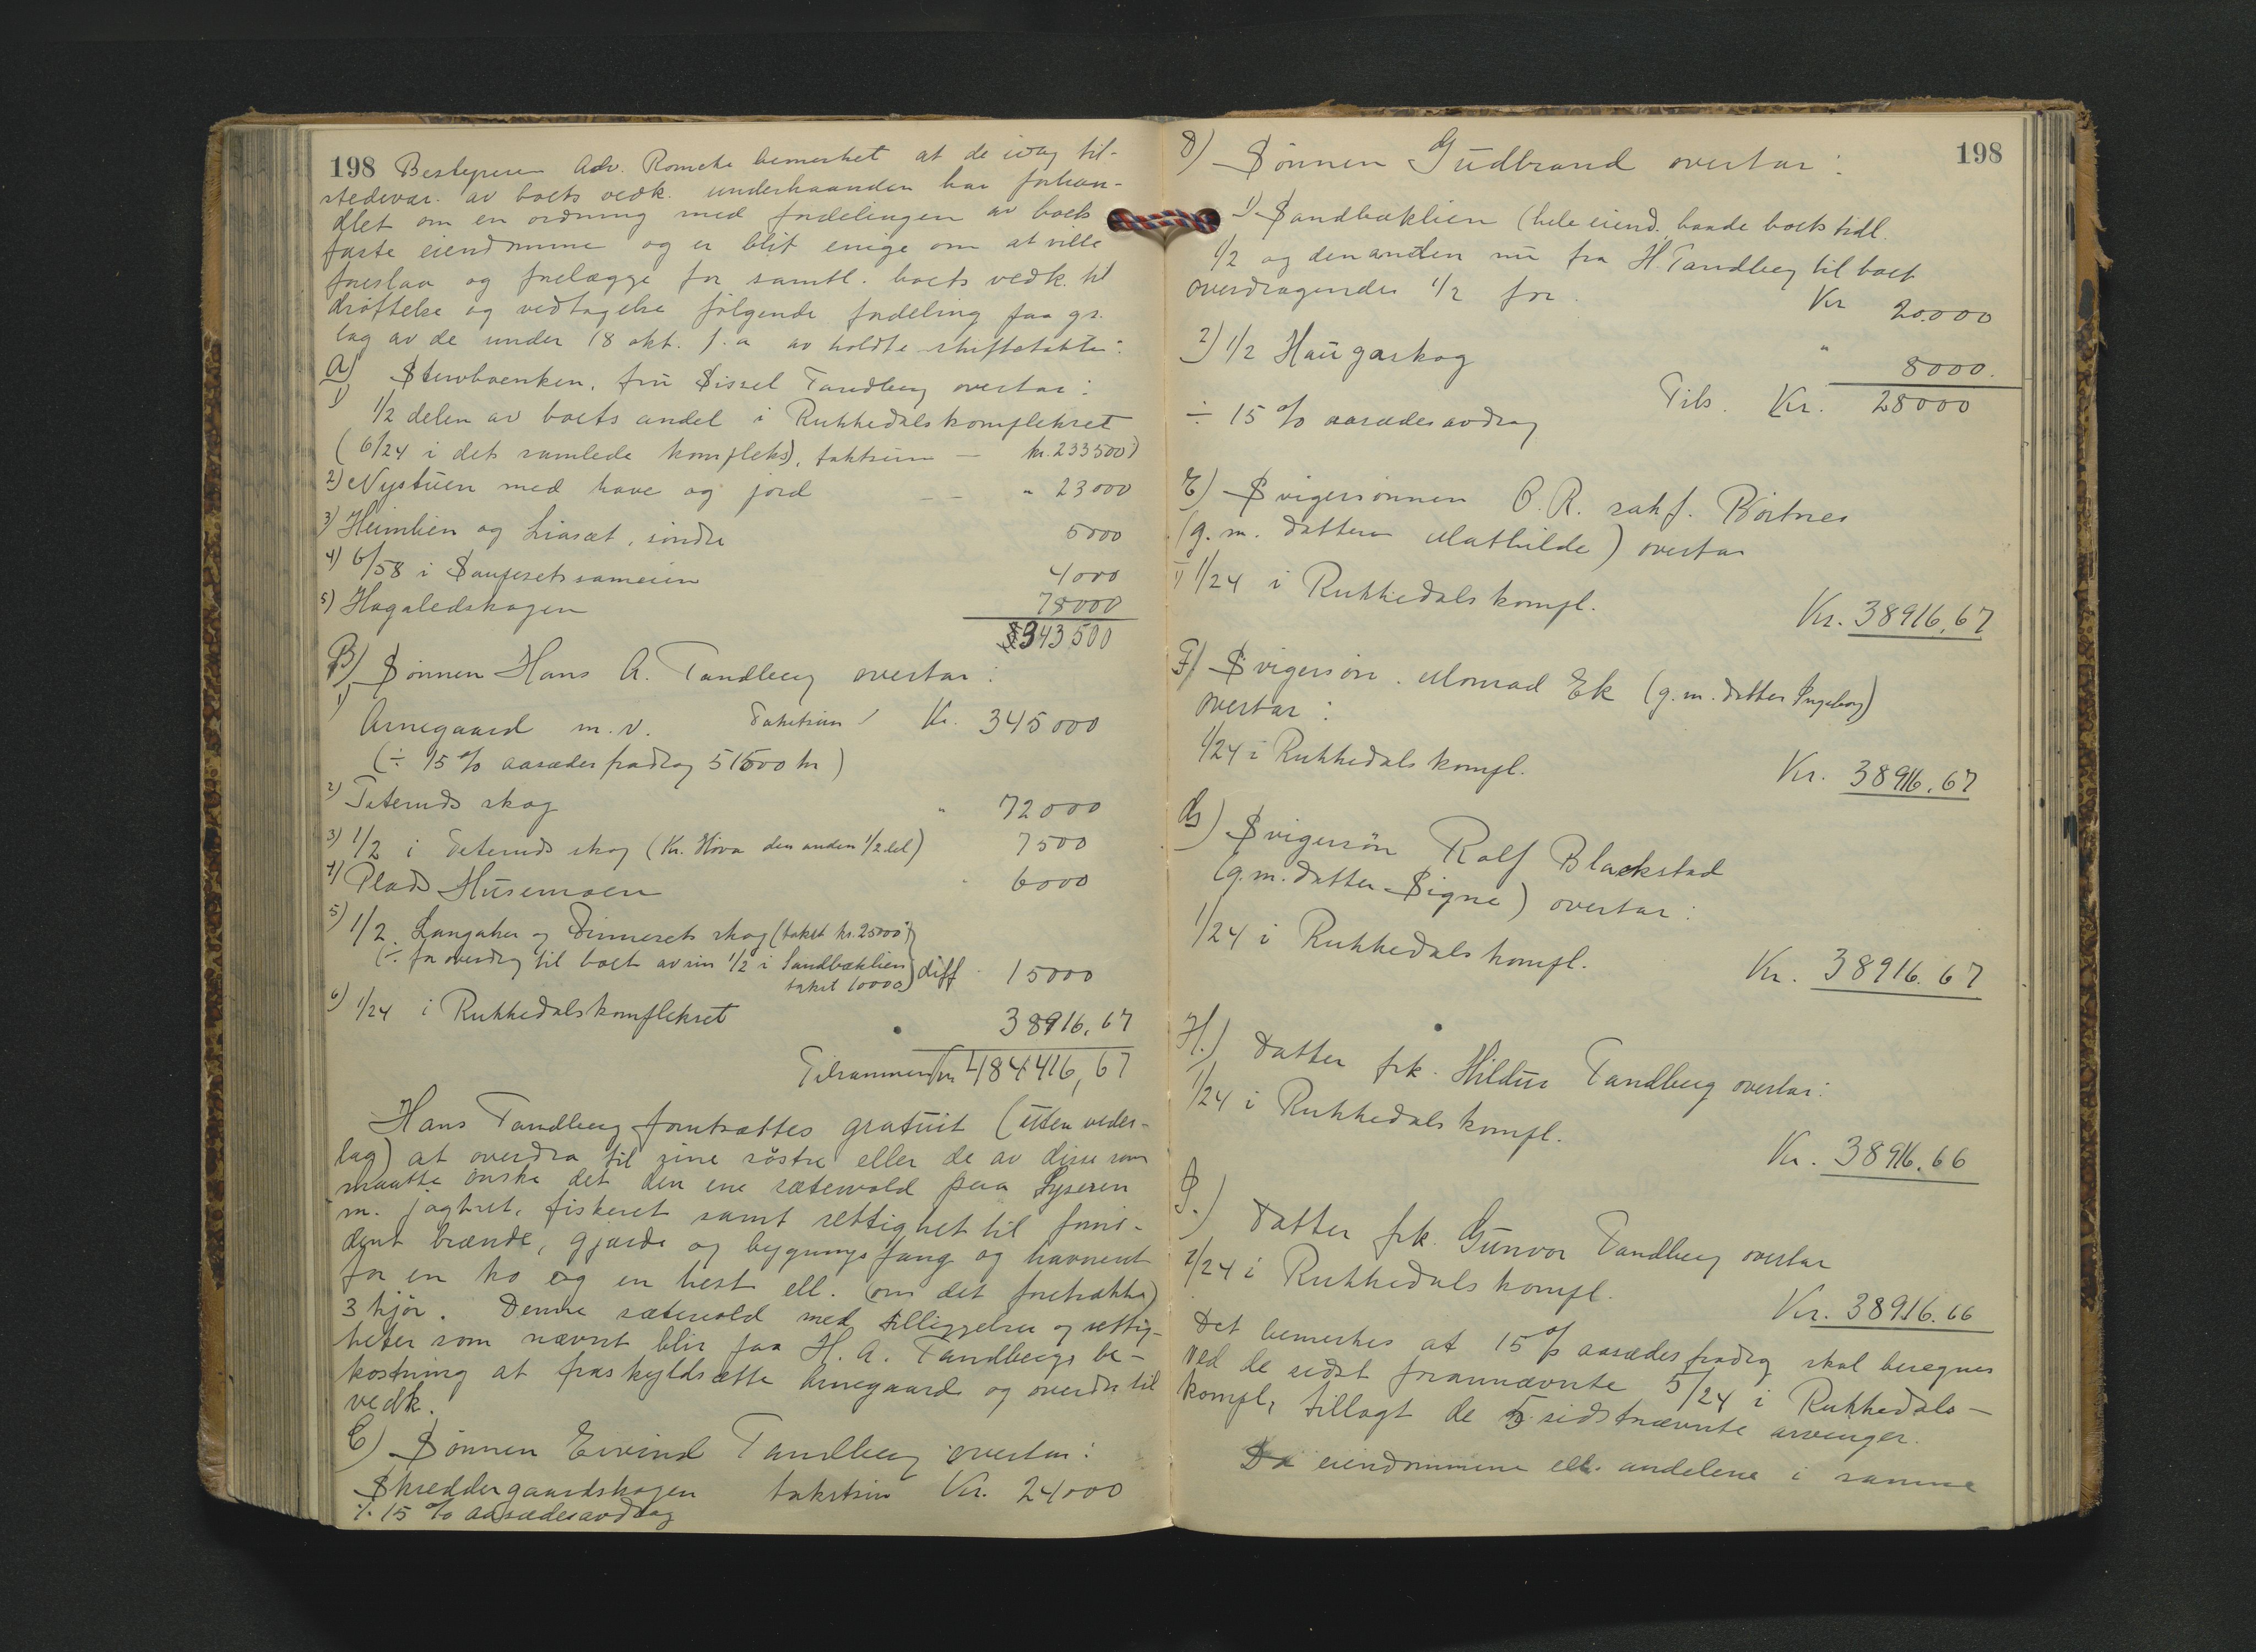 198 Bestyreren Adv. Romcke bemerket at de idag til-
stedevær. av boets vedk. underhaanden har forhan-
dlet om en ordning med fordelingen av boets
faste eiendomme og er blit enige om at ville
foreslaa og forelægge for samtl. boets vedk. til
drøftelse og vedtagelse følgende fordeling paa gr.
lag av de under 18 okt. f. a. avholdte skiftetakster:
A) Stervboenken, fru Sissel Tandberg overtar:
1) 1/2 delen av boets andel i Rukkedalskomplekset
(6/24 i det samlede kompleks), takstsum — kr. 233500)
2) Nystuen med have og jord — — " 23000
3) Heimlien og Liasæt, søndre 5000
4) 6/58 i sameien 4000
5) Hagaledskogen 78000
343500
B) Sønnen Hans A. Tandberg overtar:
1) Arnegaard m. v. Takstsum Kr. 345000
(÷ 15 % aasædesfradrag 51500 kr)
2) Teteruds skog " 72000
3) 1/2 i Teteruds skog (Kr. Hova den anden 1/2 del) 7500
4) Plads Husemoen " 6000
5) 1/2 Langaker og skog (takst kr. 25000
(÷ for overdrag til boet av sin 1/2 i Sandbæklien diff 15000
takst 10000)
6) 1/24 i Rukkedalskomplekset 38916,67
Tilsammen Kr 484416,67
Hans Tandberg forutsættes gratuit (uten veder-
lag) at overdra til sine søstre eller de av disse som
maatte ønske det den ene sætervold paa Syseren
m. jagtret, fiskeret samt rettighet til forn-
dent brænde, gjærde og bygningsfang og havneret
for en ko og en hest ell. (om det foretrækkes)
3 kjør. Denne sætervold med tilliggelser og rettig-
heter som nævnt blir paa H. A. Tandbergs be-
kostning at fraskyldsætte Arnegaard og overdra til
vedk.
C) Sønnen Eivind Tandberg overtar:
Skreddergaardskogen takstsum Kr. 24000
÷ 15 % aasædesavdrag
198
D) Sønnen Gudbrand overtar:
1) Sandbæklien (hele eiend. baade boets tidl.
1/2 og den anden nu fra H. Tandberg til boet
overdragendes 1/2 for Kr 20000
2) 1/2 Haugarskog " 8000.
Tils. Kr. 28000
÷ 15 % aasædesavdrag
E) Svigersønnen O. R. sakf. Børtnes
(g. m. datteren Mathilde) overtar
1) 1/24 i Rukkedalskompl.
Kr. 38916,67
F) Svigersøn. Monrad Ek (g. m. datter Ingeborg)
overtar:
1/24 i Rukkedalskompl.
Kr. 38916,67
G) Svigersøn Rolf Blackstad
(g. m. datter Signe) overtar:
1/24 i Rukkedalskompl.
Kr. 38916.67
H.) Datter frk. Hildur Tandberg overtar:
1/24 i Rukkedalskompl.
Kr. 38916.66
I.) Datter frk. Gunvor Tandberg overtar
1/24 i Rukkedalskompl.
Kr. 38916.66
Det bemerkes at 15 % aasædesfradrag skal beregnes
ved de sidst forannævnte 5/24 i Rukkedals-
kompl, tillagt de 5 sidstnævnte arvinger.
Da eiendommene ell. andelene i samme